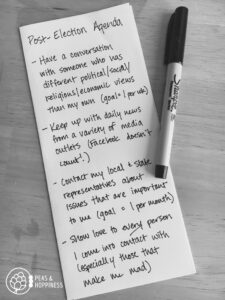 Post-Election Agenda
- Have a conversation
with someone who has
different political/social/
religious/economic views
than my own (goal = 1 per wk)
- Keep up with daily news
from a variety of media
outlets (Facebook doesn't
count!)
- Contact my local & state
representatives about
issues that are important
to me (goal = 1 per month)
- Show love to every person
I come into contact with
(especially those that
make me mad)
Sharpie
PEAS &
HOPPINESS